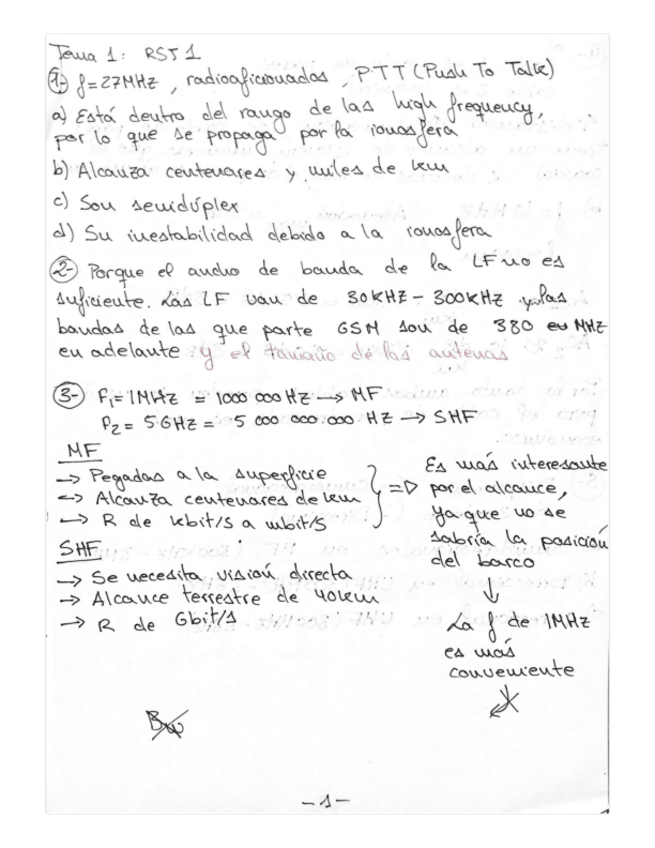 Tema 1: RST 1
1- f=27MHz, radioaficionados, PTT (Push To Talk)
a) Está dentro del rango de las high frequency,
por lo que se propaga por la ionosfera
b) Alcanza centenares y miles de km
c) Son semidúplex
d) Su inestabilidad debido a la ionosfera
2- Porque el ancho de banda de la LF no es
suficiente. Las LF van de 30KHz - 300KHz y las
bandas de las que parte GSM son de 380 en MHz
en adelante y el tamaño de las antenas
3- F1 = 1MHz = 1000 000 Hz → MF
F2 = 5GHz = 5 000 000 000 Hz → SHF
MF
→ Pegadas a la superficie
→ Alcanza centenares de km
→ R de kbit/s a mbit/s
SHF
→ Se necesita visión directa
→ Alcance terrestre de 40km
→ R de Gbit/s
=> Es más interesante
por el alcance,
ya que no se
sabría la posición
del barco
↓
La f de 1MHz
es más
conveniente
-1-